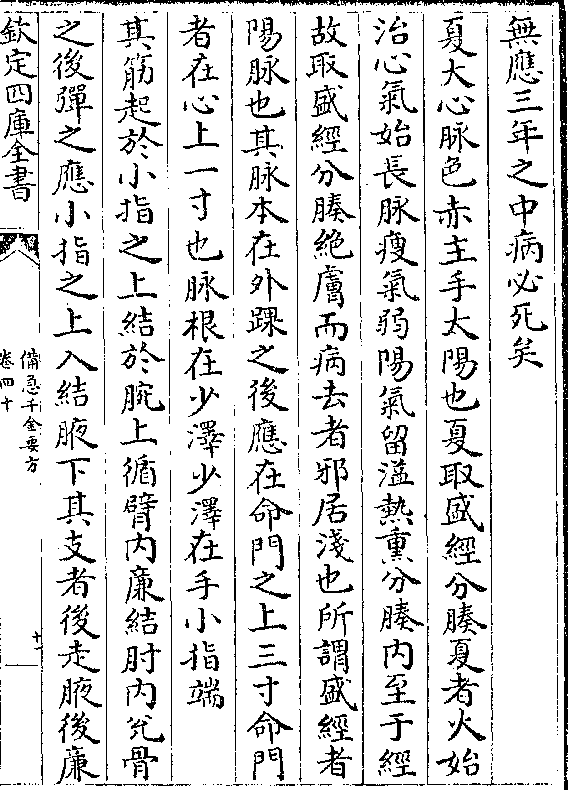 無應三年之中病必死矣
夏大心脉色赤主手太陽也夏取盛經分腠夏者火始
治心氣始長脉瘦氣弱陽氣留溢熱熏分腠内至于經
故取盛經分腠絶膚而病去者邪居淺也所謂盛經者
陽脉也其脉本在外踝之後應在命門之上三寸命門
者在心上一寸也脉根在少澤少澤在手小指端
其筋起於小指之上結於腕上循臂内廉結肘内兊骨
之後彈之應小指之上入結腋下其支者後走腋後廉
欽定四庫全書
備急千金要方
卷四十
十一